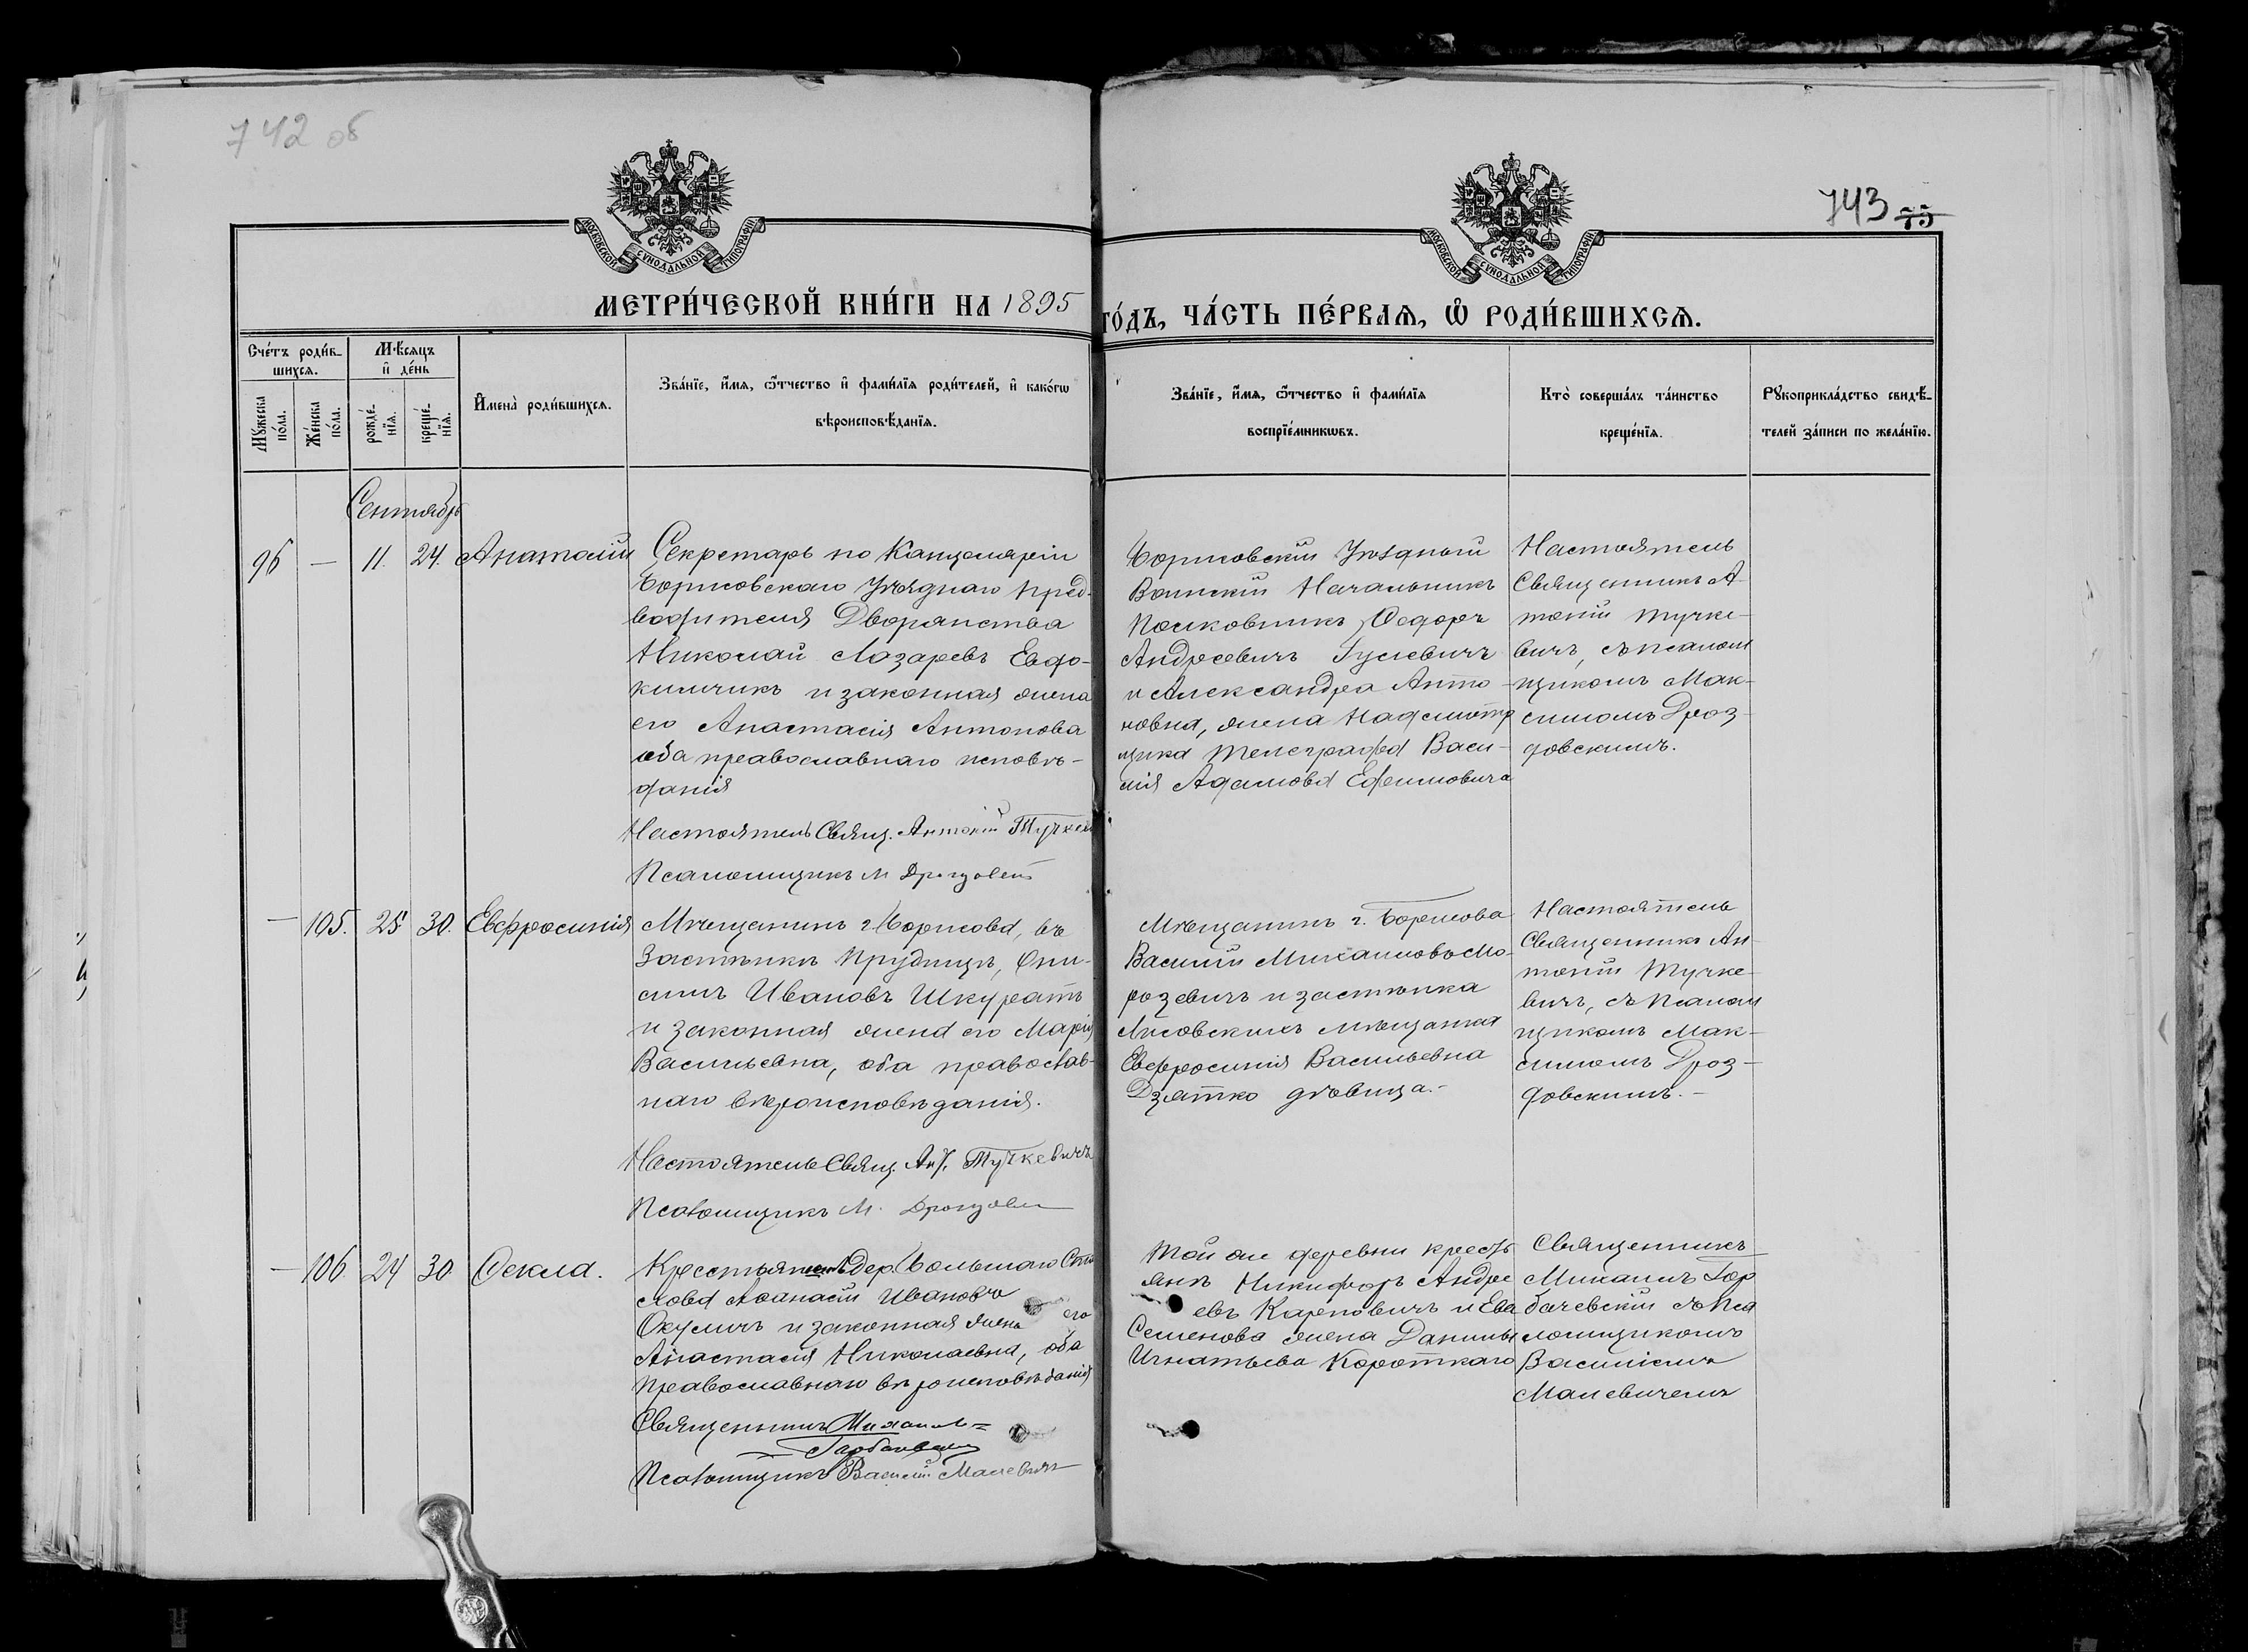 742 об
743
75
МОСКОВСКОЙ СѴНОДАЛЬНОЙ ТИПОГРАФІИ
МОСКОВСКОЙ СѴНОДАЛЬНОЙ ТИПОГРАФІИ
МЕТРИ́ЧЕСКОЙ КНИ́ГИ НА 1895
ГО́ДЪ, ЧА́СТЬ ПЕ́РВАѦ, Ѡ҆ РОДИ́ВШИХСѦ.
Сче́тъ роди́в-
шихсѧ.
Мѣсѧцъ
и҆ де́нь
Мꙋ́жеска
по́ла.
Же́нска
по́ла.
рожде́-
нїѧ.
креще́-
нїѧ.
И҆мена̀ роди́вшихсѧ.
Зва́нїе, и҆́мѧ, ѻ҆́тчество и҆ фамі́лїѧ роди́телей, и҆ како́гѡ
вѣроисповѣ́данїѧ.
Зва́нїе, и҆́мѧ, ѻ҆́тчество и҆ фамі́лїѧ
воспрїе́мникѡвъ.
Кто̀ соверша́лъ та́инство
креще́нїѧ.
Рꙋкоприкла́дство свидѣ́-
телей за́писи по жела́нїю.
Сентябрь
96 — 11. 24. Анатолій
Секретарь по Канцеляріи
Борисовскаго Уѣзднаго Пред-
водителя Дворянства
Николай Лазаревъ Евдо-
кимчикъ и законная жена
его Анастасія Антонова
оба православнаго исповѣ-
данія
Настоятель Свящ. Антоній Тучкев
Псаломщикъ М Дроздовск
Борисовскій Уѣздный
Воинскій Начальникъ
Полковникъ Ѳедоръ
Андреевичъ Гуслевичъ
и Александра Анто-
новна, жена Надсмотр
щика Телеграфа Васи-
лія Адамова Ефимовича
Настоятель
Священникъ А
тоній Тучке-
вичъ, съ псалом
щикомъ Мак-
симомъ Дроз-
довскимъ.
— 105. 25. 30. Евфросинія
Мѣщанинъ г. Борисова, въ
Застѣнкѣ Прудищѣ, Они-
симъ Ивановъ Шкуратъ
и законная жена его Марія
Васильевна, оба православ-
наго вѣроисповѣданія.
Настоятель Свящ. Ант. Тучкевичъ
Псаломщикъ М. Дроздовск
Мѣщанинъ г. Борисова
Василій Михаиловъ Мо-
розевичъ и застѣнка
Лисовскихъ мѣщанка
Евфросинія Васильевна
Дзятко дѣвица.-
Настоятель
Священникъ Ан-
тоній Тучке-
вичъ, съ псалом
щикомъ Мак-
симомъ Дроз-
довскимъ.-
— 106 24 30 Ѳекла.
Крестьянинъ дер. Большаго Ста
хова Аѳанасій Ивановъ
Окуличъ и законная жена его
Анастасія Николаевна, оба
Православнаго вѣроисповѣданія
Священникъ Михаилъ
Горбачевскій
Псаломщикъ Василій Малевичъ
Той же деревни кресть
янъ Никифоръ Андре
евъ Карповичъ и Ева
Семенова жена Даниила
Игнатьева Короткаго
Священникъ
Михаилъ Гор
бачевскій съ Пса
ломщикомъ
Василіемъ
Малевичемъ